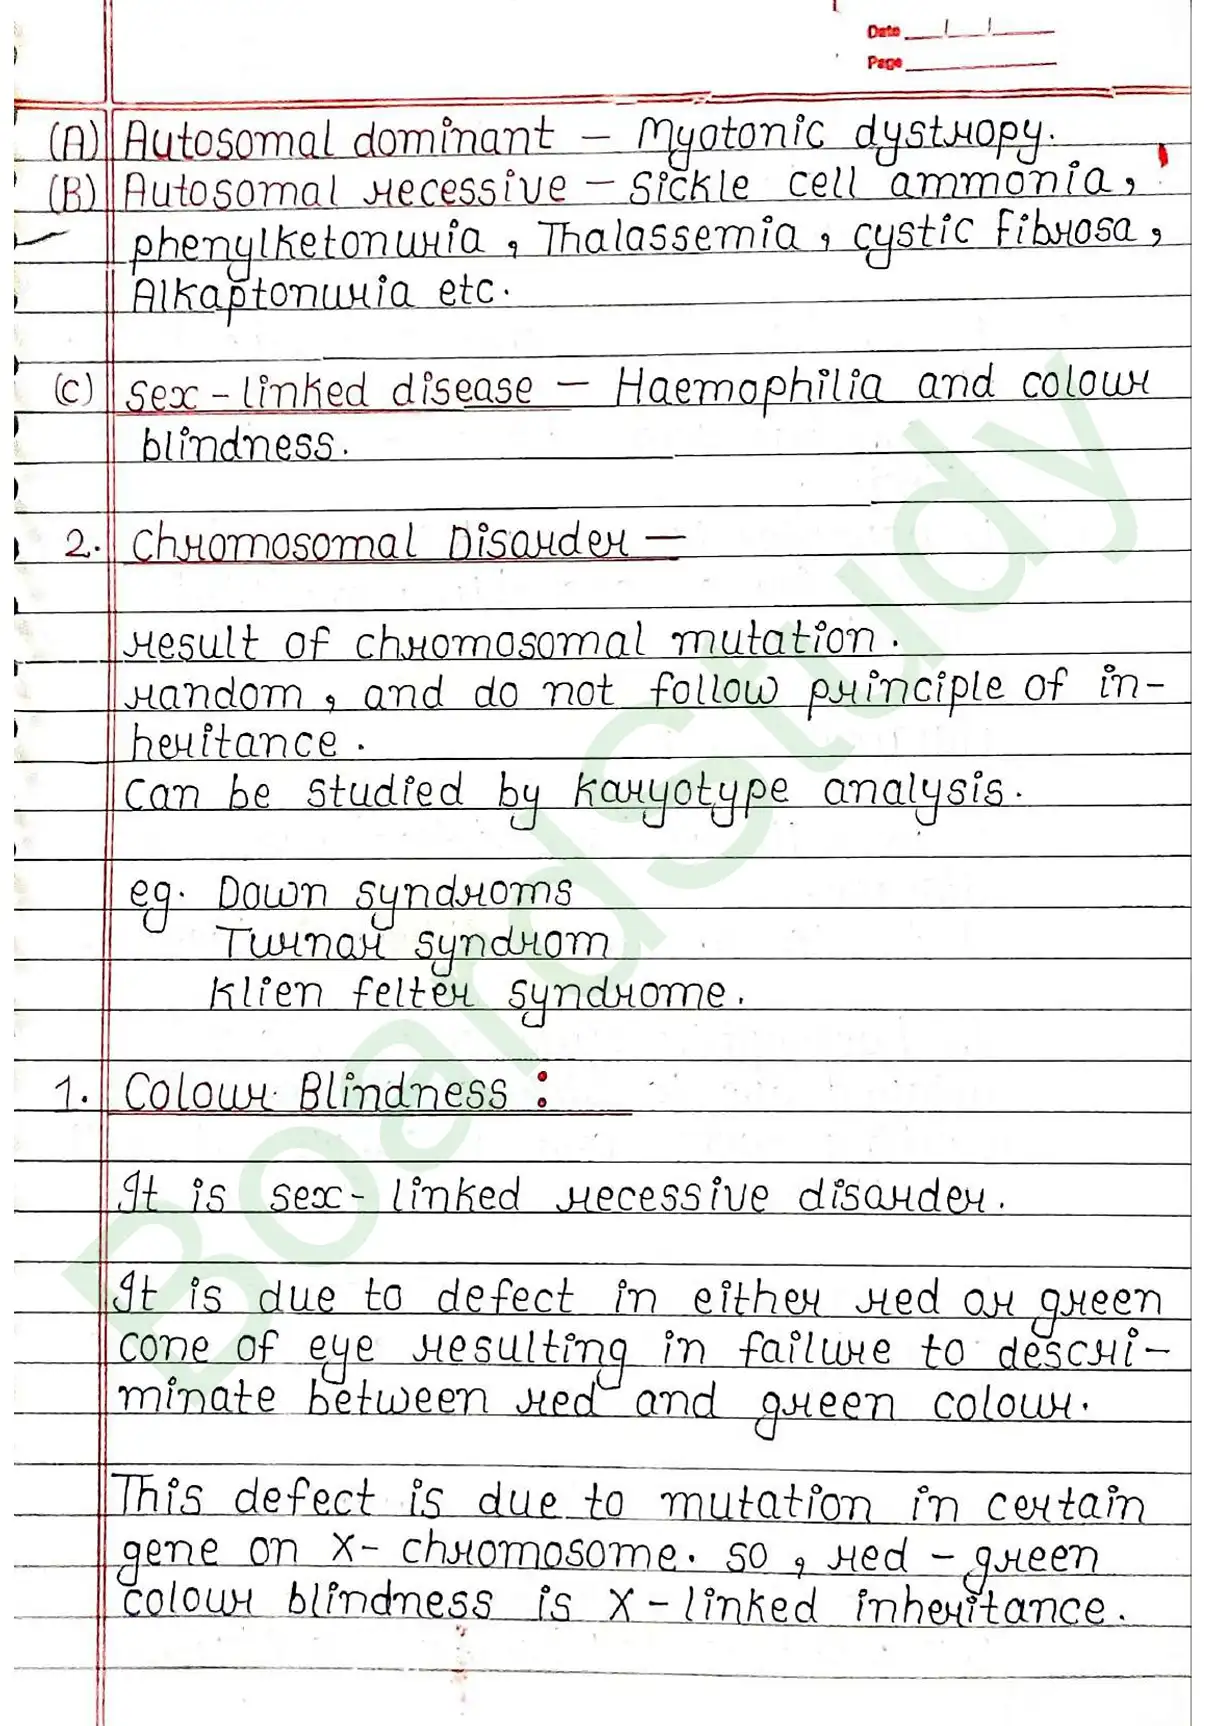 Date
Page
(A) Autosomal dominant – Myotonic dystropy.
(B) Autosomal recessive – Sickle cell ammonia,
phenylketonuria, Thalassemia, cystic fibrosa,
Alkaptonuria etc.
(C) Sex-linked disease – Haemophilia and colour
blindness.
2. Chromosomal Disorder –
result of chromosomal mutation.
random, and do not follow principle of in-
heritance.
Can be studied by karyotype analysis.
eg. Down syndroms
Turnar syndrom
Klien felter syndrome.
1. Colour Blindness :
It is sex-linked recessive disorder.
It is due to defect in either red or green
cone of eye resulting in failure to descri-
minate between red and green colour.
This defect is due to mutation in certain
gene on X-chromosome. So, red-green
colour blindness is X-linked inheritance.
BoardStudy